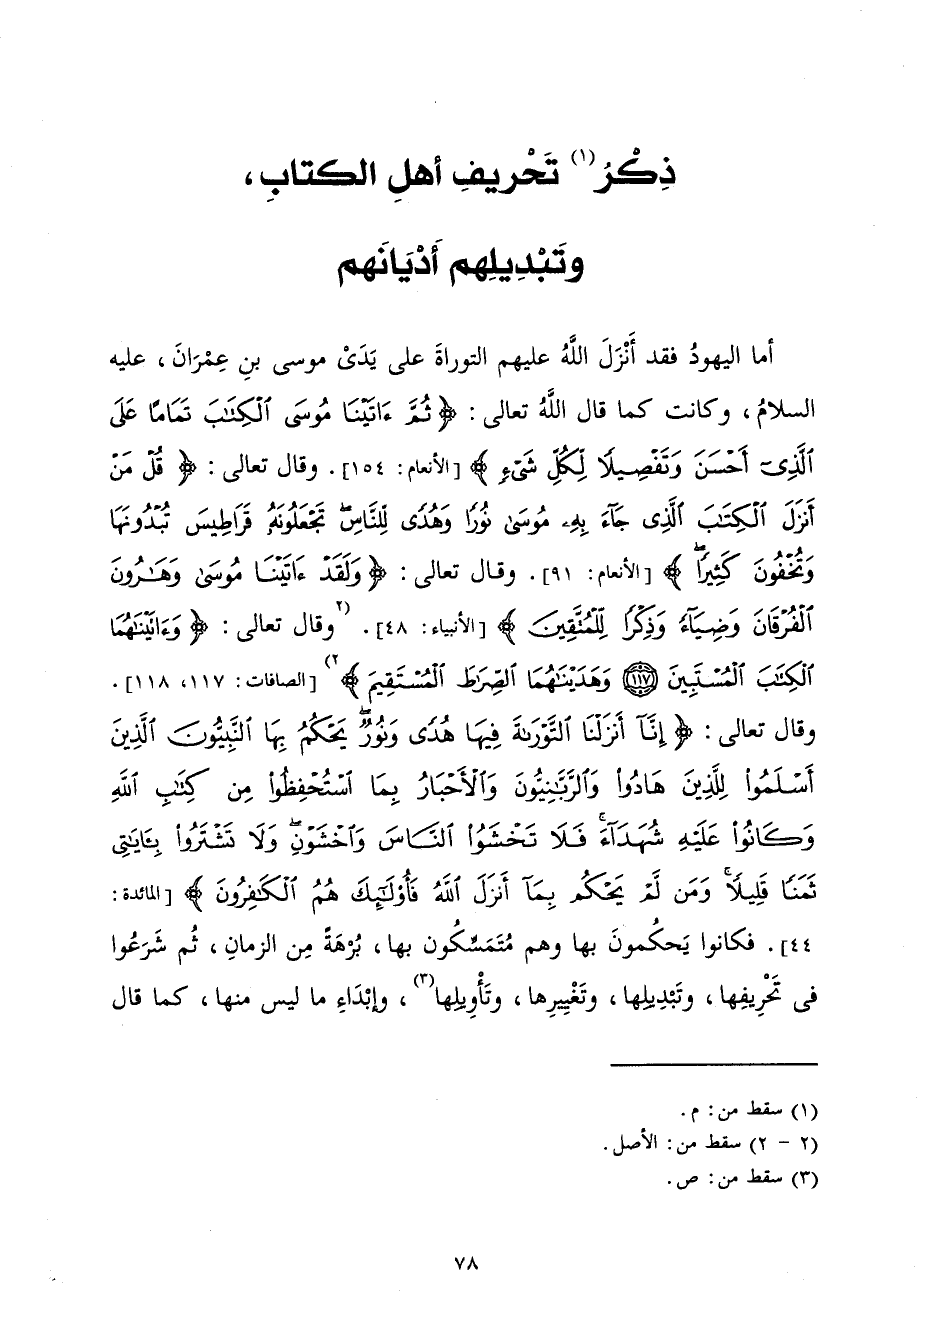 ذِكْرُ(١) تَحْريفِ أهلِ الكتابِ،
وتَبْدِيلِهم أَدْيَانَهم
أما اليهودُ فقد أَنْزَلَ اللَّهُ عليهم التوراةَ على يَدَىْ موسى بنِ عِمْرَانَ، عليه
السلامُ، وكانت كما قال اللَّهُ تعالى: ﴿ ثُمَّ ءَاتَيْنَا مُوسَى ٱلْكِتَٰبَ تَمَامًا عَلَى
ٱلَّذِىٓ أَحْسَنَ وَتَفْصِيلًا لِّكُلِّ شَىْءٍ ﴾ [الأنعام: ١٥٤]. وقال تعالى: ﴿ قُلْ مَنْ
أَنزَلَ ٱلْكِتَٰبَ ٱلَّذِى جَآءَ بِهِۦ مُوسَىٰ نُورًا وَهُدًى لِّلنَّاسِۖ تَجْعَلُونَهُۥ قَرَاطِيسَ تُبْدُونَهَا
وَتُخْفُونَ كَثِيرًاۖ ﴾ [الأنعام: ٩١]. وقال تعالى: ﴿ وَلَقَدْ ءَاتَيْنَا مُوسَىٰ وَهَٰرُونَ
ٱلْفُرْقَانَ وَضِيَآءً وَذِكْرًا لِّلْمُتَّقِينَ ﴾ [الأنبياء: ٤٨]. (٢وقال تعالى: ﴿ وَءَاتَيْنَٰهُمَا
ٱلْكِتَٰبَ ٱلْمُسْتَبِينَ ۝١١٧ وَهَدَيْنَٰهُمَا ٱلصِّرَٰطَ ٱلْمُسْتَقِيمَ ﴾٢) [الصافات: ١١٧، ١١٨].
وقال تعالى: ﴿ إِنَّآ أَنزَلْنَا ٱلتَّوْرَىٰةَ فِيهَا هُدًى وَنُورٌۚ يَحْكُمُ بِهَا ٱلنَّبِيُّونَ ٱلَّذِينَ
أَسْلَمُوا۟ لِلَّذِينَ هَادُوا۟ وَٱلرَّبَّٰنِيُّونَ وَٱلْأَحْبَارُ بِمَا ٱسْتُحْفِظُوا۟ مِن كِتَٰبِ ٱللَّهِ
وَكَانُوا۟ عَلَيْهِ شُهَدَآءَۚ فَلَا تَخْشَوُا۟ ٱلنَّاسَ وَٱخْشَوْنِ وَلَا تَشْتَرُوا۟ بِـَٔايَٰتِى
ثَمَنًا قَلِيلًاۚ وَمَن لَّمْ يَحْكُم بِمَآ أَنزَلَ ٱللَّهُ فَأُو۟لَٰٓئِكَ هُمُ ٱلْكَٰفِرُونَ ﴾ [المائدة:
٤٤]. فكانوا يَحكُمونَ بها وهم مُتَمَسِّكون بها، بُرْهَةً مِن الزمانِ، ثُم شَرَعُوا
فى تَحْرِيفِها، وتَبْدِيلِها، وتَغْيِيرِها، وتَأْوِيلِها(٣)، وإبْدَاءِ ما ليس منها، كما قال
(١) سقط من: م.
(٢ - ٢) سقط من: الأصل.
(٣) سقط من: ص.
٧٨